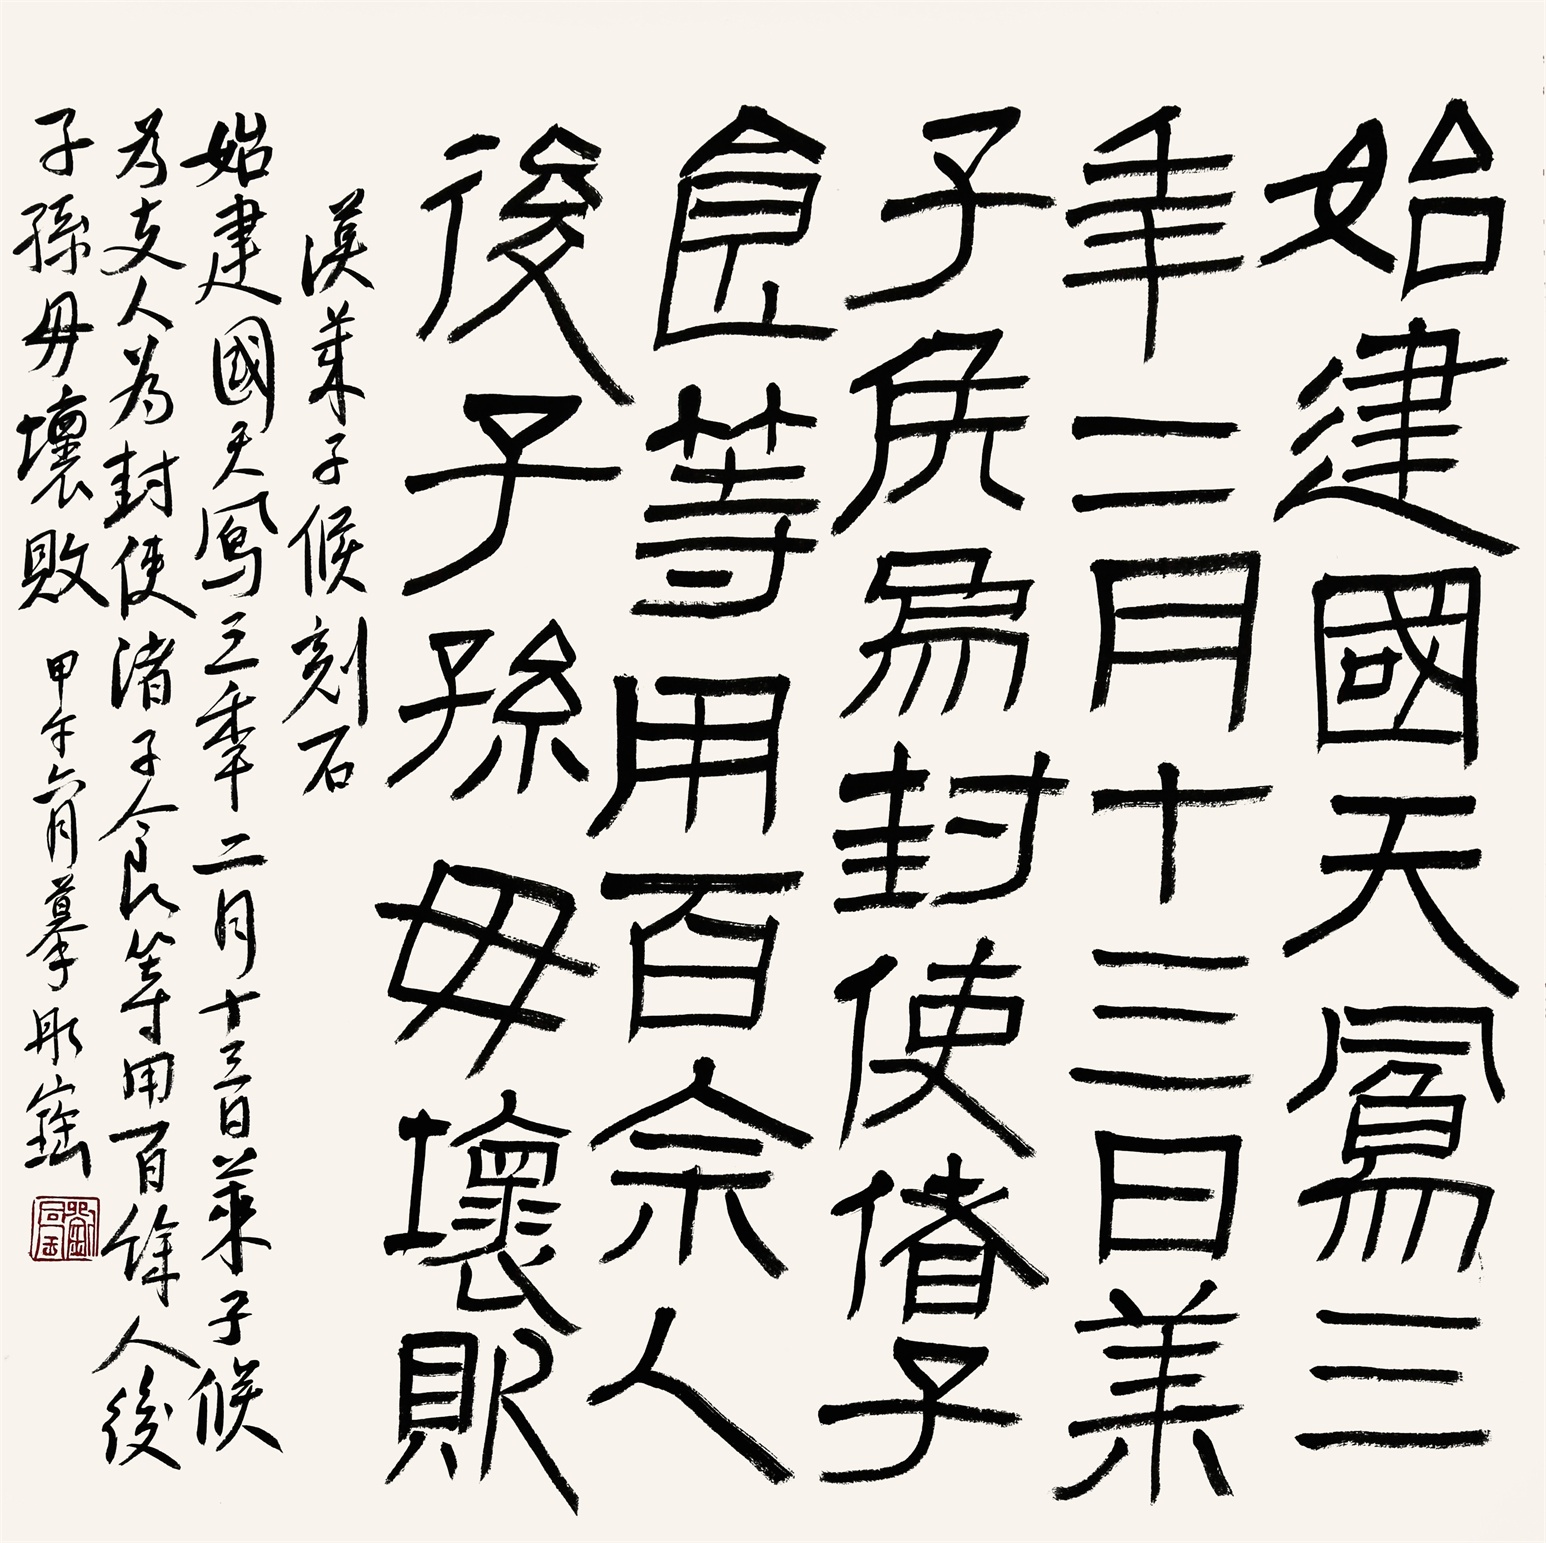 始建國天鳳三
年二月十三日萊
子侯為封使偖子
食等用百余人
後子孫毋壞敗
漢萊子候刻石
始建國天鳳三年二月十三日萊子候
為支人為封使渚子食等用百餘人後
子孫毋壞敗 甲午六月摹彤